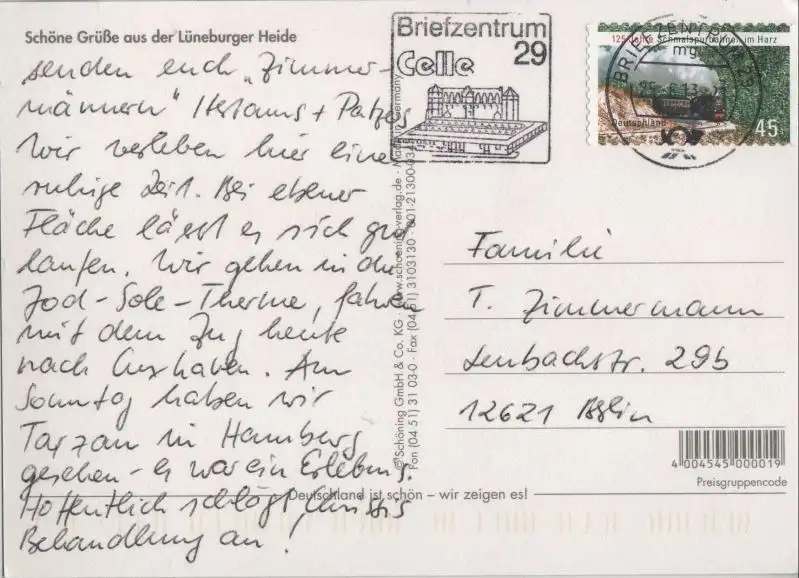 Schöne Grüße aus der Lüneburger Heide
senden euch „Zimmer-
männern" Hermanns + Patzers
Wir verleben hier eine
ruhige Zeit. Bei ebener
Fläche lässt es sich gut
laufen. Wir gehen in die
Jod-Sole-Therme, fahren
mit dem Zug heute
nach Cuxhaven. Am
Sonntag haben wir
Tarzan in Hamburg
gesehen - es war ein Erlebnis.
Hoffentlich schlägt Chris's
Behandlung an!
Deutschland ist schön – wir zeigen es!
© Schöning GmbH & Co. KG · www.schoening-verlag.de · Made in Germany
Fon (04 51) 31 03-0 · Fax (04 51) 3103130 · 001-21300-0345
Briefzentrum
29
Celle
125 Jahre Schmalspurbahnen im Harz
Deutschland
45
BRIEFZENTRUM
mg
25.-6.13
Familie
T. Zimmermann
Lenbachstr. 29b
12621 Berlin
4 004545 000019
Preisgruppencode